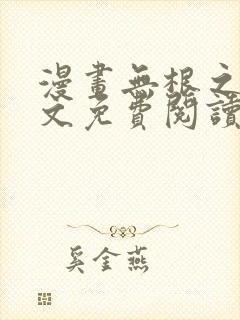 漫畫無根之
文免費閱讀
奚金燕